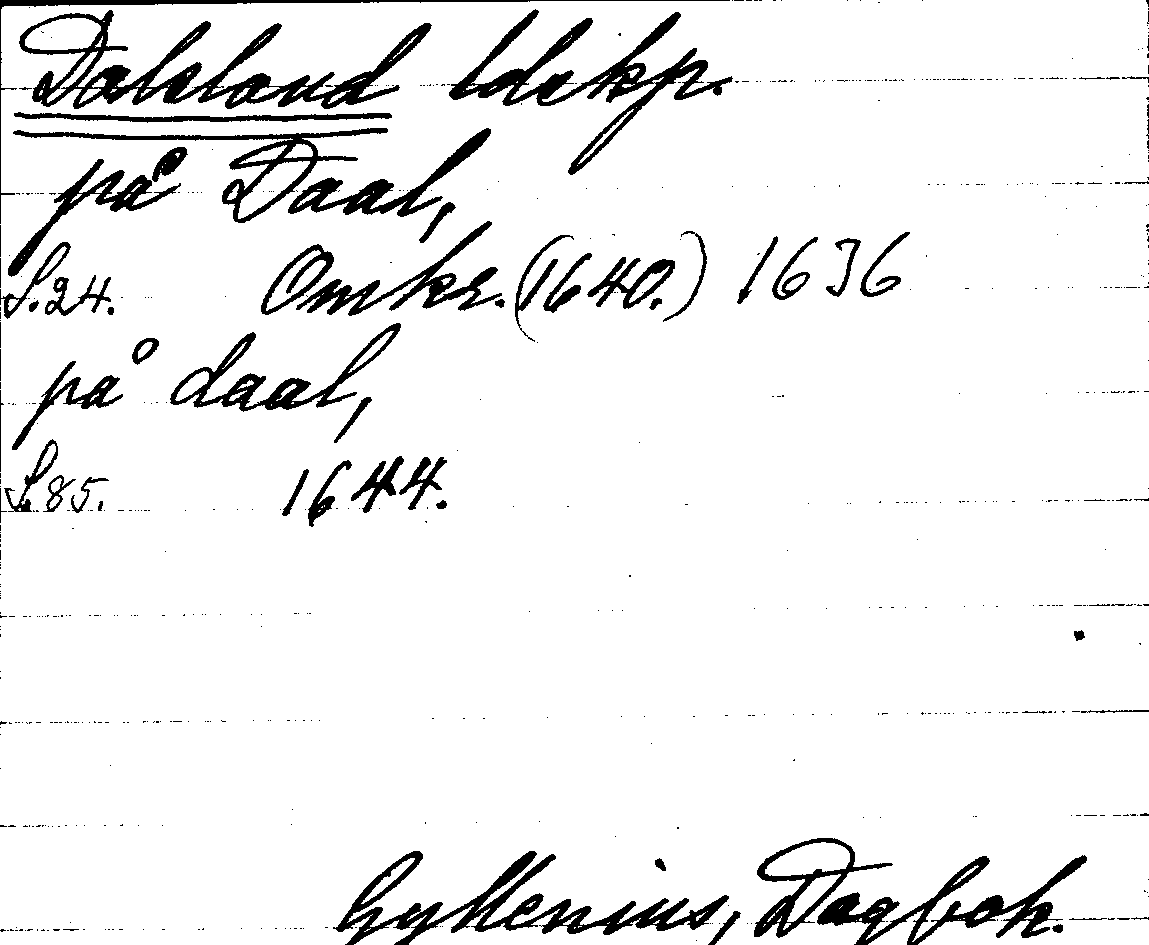 Dalsland ldskp.
på Daal,
S.24. Omkr. (1640.) 1636
på daal,
S.85. 1644.
Gyllenius, Dagbok.